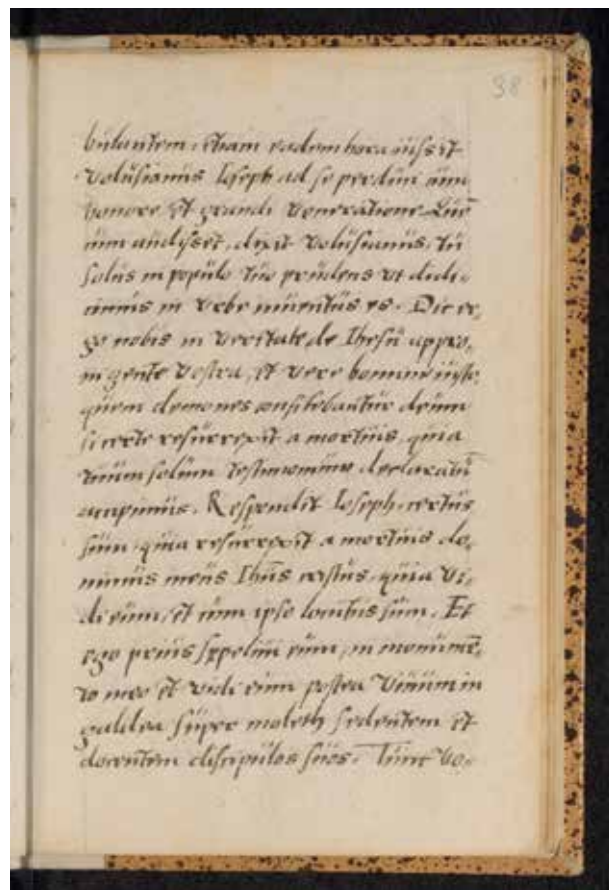 38
bulantem. Etiam eadem hora iussit
Volusianus Ioseph ad se perduci cum
honore et grandi veneratione. Quē
cum audisset, dixit Volusianus, tu
solus in populo tuo prudens ut didi-
cimus in urbe inventus es. Dic er-
go nobis in veritate de Ihesu
in gente vestra, et vere homine iusto,
quem demones confitebantur deum
si certe resurrexit a mortuis, quia
tuum solum testimonium declaratū
accipimus. Respondit Ioseph, certus
sum quia resurrexit a mortuis do-
minus meus Ihūs cristus, quia vi-
di eum, et cum ipso locutus sum. Et
ego prius sepelivi eum, in monumē-
to meo et vidi eum postea vivum in
galilea super maleth sedentem et
docentem discipulos suos. Tunc Vo-